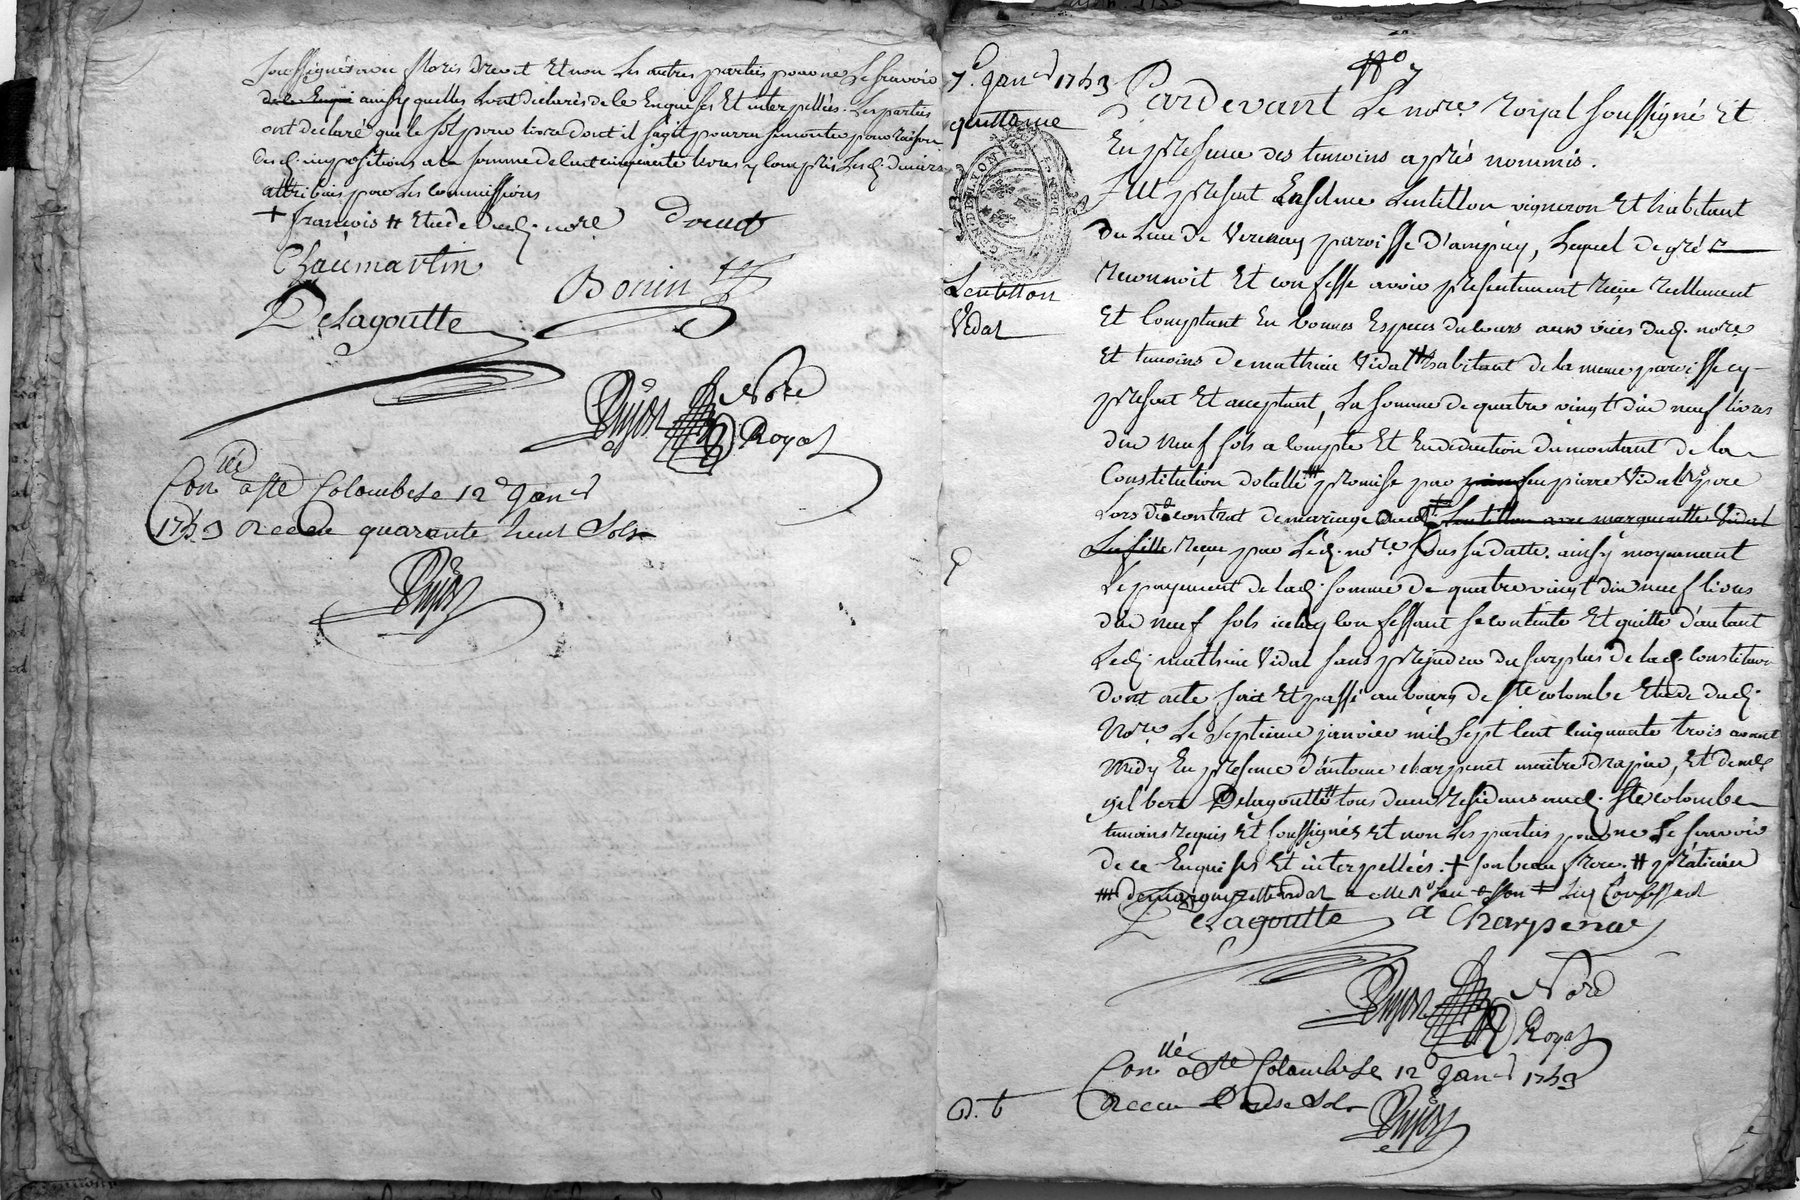 soussignés avec floris drevet Et non Les autres parties pour ne Le scavoir
de le Enqui ainsy quelles sont declarés de le Enquises Et interpellées. Les parties
ont declaré que le sol pour livre dont il s'agit pourra se monter pour raison
desd. impositions a la somme de cent cinquante livres y compris Lesd. deniers
attribués pour Les commissions
+ françois # Etude dud. nore Drevet
Chaumartin
Bonin
Delagoutte
Dujas Nore
Royal
Con^llé a Ste Colombe Le 12e Janer
1753 Receu quarante huit Sols
Dujas
7e. Janer 1753
quittance
GEN. DE LYON
Lentillon
Vidal
No 7
Pardevant Le nore. Royal soussigné Et
En presence des temoins après nommés.
fut present Enselme Lentillon vigneron Et habitant
du lieu de Verenay paroisse d'ampuy, Lequel de gré
reconnoit Et confesse avoir presentement reçu reellement
Et Comptant En bonnes Especes du cours aux vües dud. nore
Et temoins de mathieu Vidal # habitant de la meme paroisse cy-
present Et acceptant, La somme de quatre vingt dix neuf livres
dix neuf sols a compte Et En deduction du montant de la
Constitution dotalle # promise par feu pierre Vidal pere
Lors du contrat de mariage dud. Lentillon avec marguerite Vidal
sa fille reçu par Led. nore. sous sa datte. ainsy moyennant
Le payement de lad. somme de quatre vingt dix neuf livres
dix neuf sols icelluy confessant se contente Et quitte d'autant
Led. mathieu Vidal sans prejudice du surplus de lad. constitution
dont acte fait Et passé au bourg de Ste colombe Etude dud.
Nore. Le septieme janvier mil sept cent cinquante trois avant
Midy En presence d'antoine charpenet maitre drapier, Et de me
gilbert Delagoutte # tous deux residans aud. Ste colombe
temoins requis Et soussignés Et non Les parties pour ne Le scavoir
de ce Enquises Et interpellées. + son beau frere. # praticien
### de marguerite Vidal
Delagoutte a Charpenay
Dujas Nore
Royal
Con^llé a Ste Colombe Le 12e Janer 1753
Receu Douse Sols
D. t
Dujas